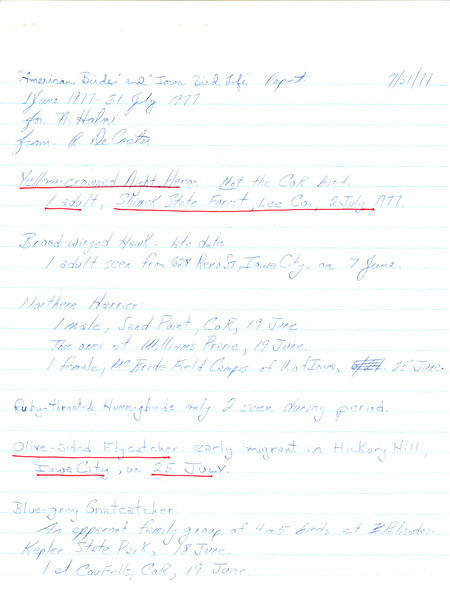 "American Birds" and "Iowa Bird Life" Report 7/31/77
1 June 1977-31 July 1977
for N. Halmi
from R. DeCoster
Yellow-crowned Night Heron: Not the CoR bird.
1 adult, Shimek State Forest, Lee Co., 2 July 1977.
Broad-winged Hawk: late date
1 adult seen from 628 Reno St, Iowa City, on 7 June.
Northern Harrier:
1 male, Sand Point, CoR, 19 June
The ones at Williams Prairie, 19 June.
1 female, McBride Field Campus of U of Iowa, 25 June.
Ruby-throated Hummingbirds only 2 seen during period.
Olive-sided Flycatcher: early migrant in Hickory Hill,
Iowa City, on 25 JULY.
Blue-gray Gnatcatcher:
An apparent family group of 4 or 5 birds at Palisades-
Kepler State Park, 18 June.
1 at Cou Falls, CoR, 19 June.